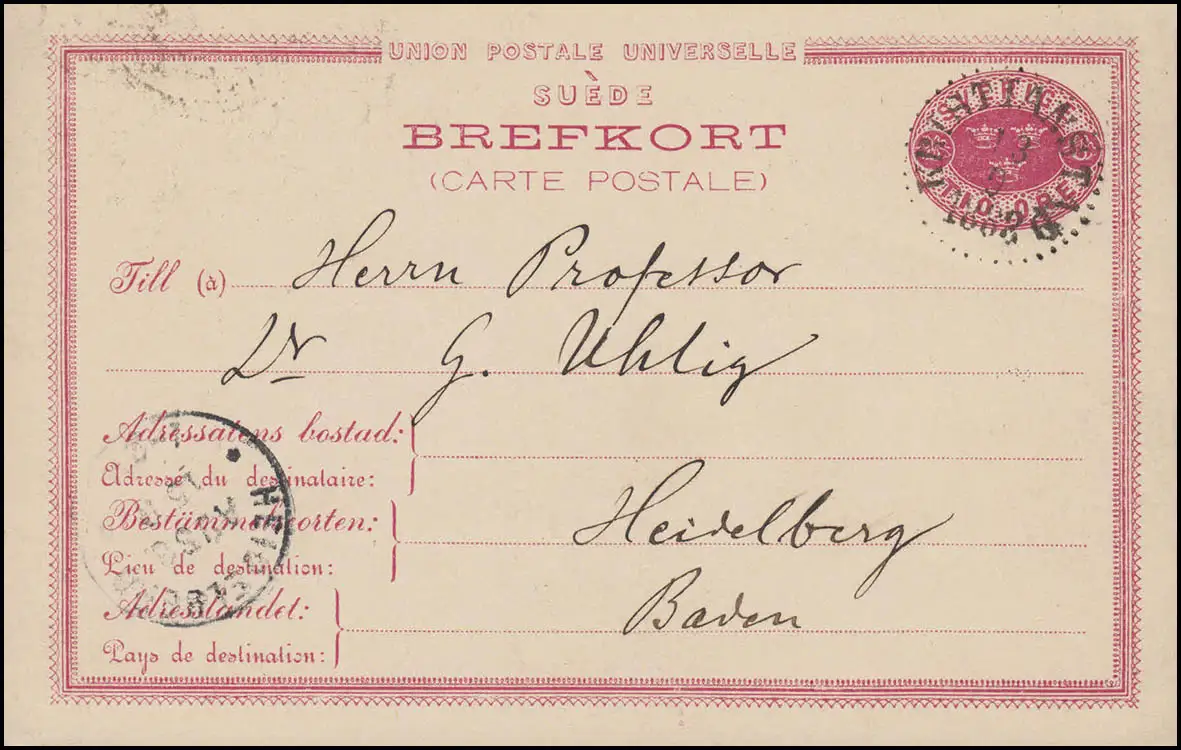 UNION POSTALE UNIVERSELLE
SUÈDE
BREFKORT
(CARTE POSTALE)
TIO ÖRE
13
Till (à) Herrn Professor
Dr G. Uhlig
Adressatens bostad:
Adresse du destinataire:
Bestämmelseorten:
Lieu de destination:
Heidelberg
Adresslandet:
Pays de destination:
Baden
HEIDELBERG